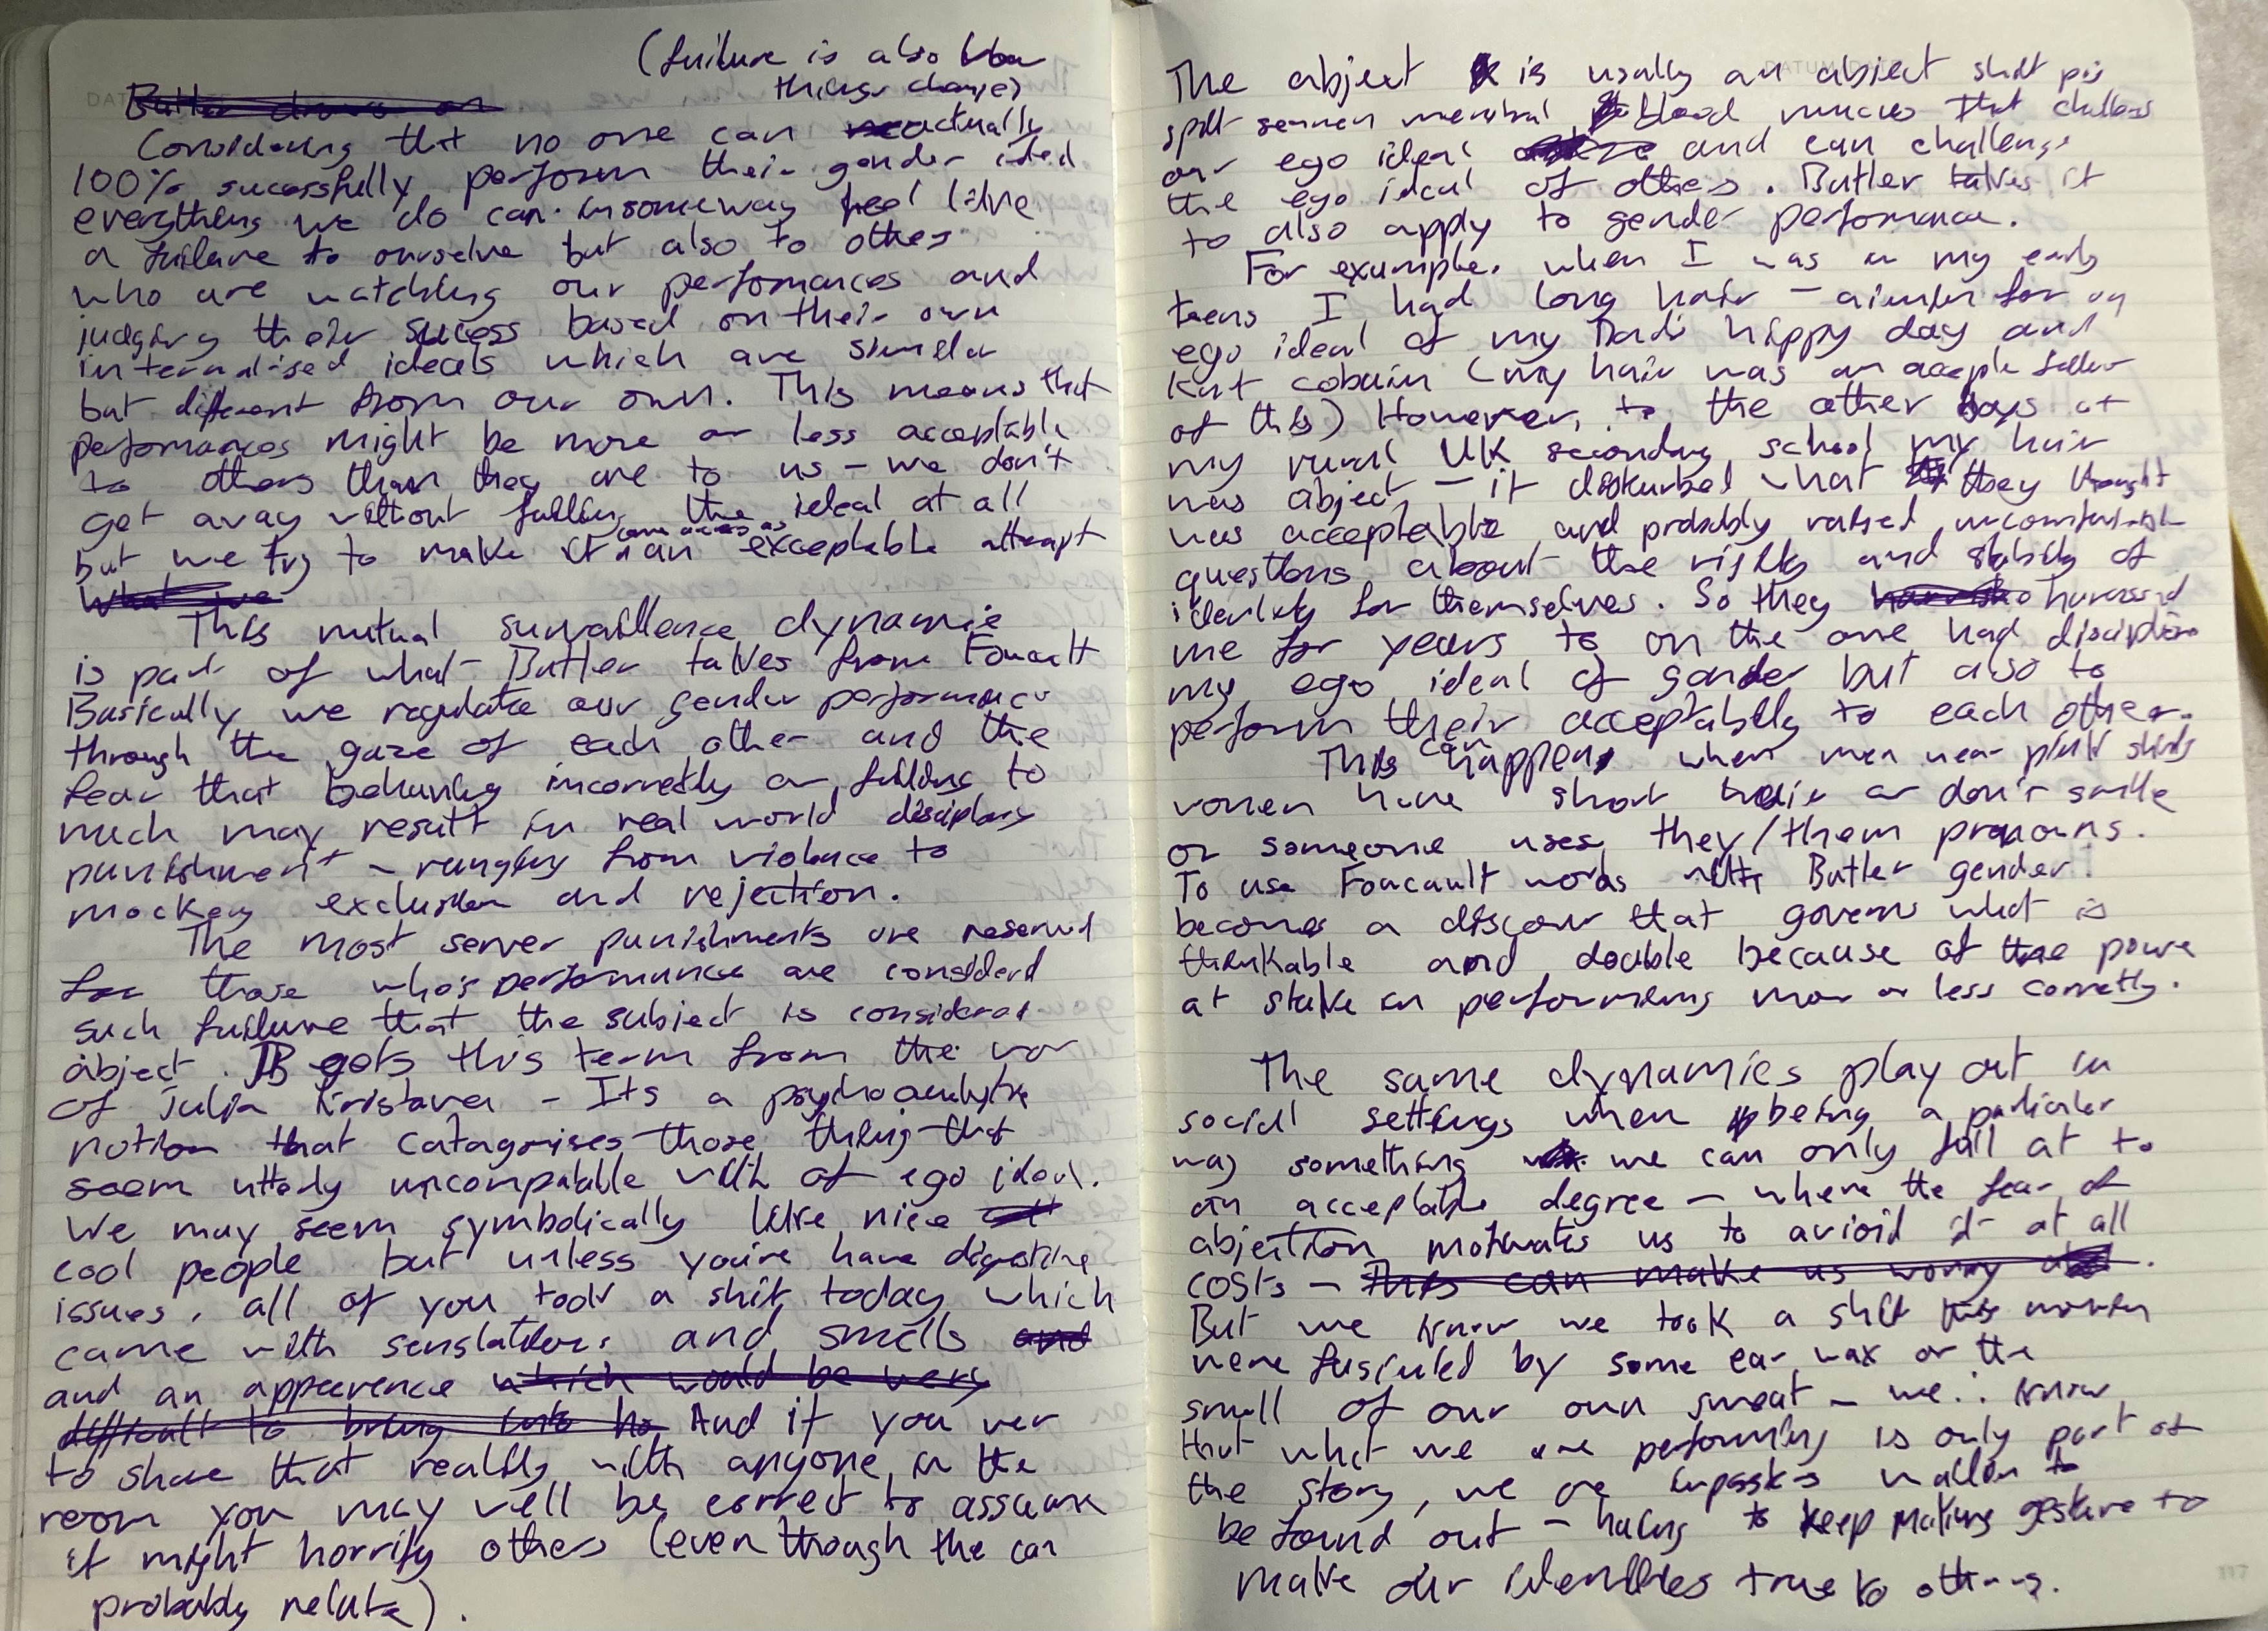 (failure is also how
things change)
Butler draws on
Considering that no one can actually
100% sucessfully perform their gender ideal
everything we do can in someway feel like
a failure to ourselve but also to others
who are watching our perfomances and
judging their sucess based on their own
internalised ideals which are similar
but different from our own. This means that
perfomances might be more or less acceptable
to others than they are to us - we don't
get away without failing the ideal at all
but we try to make it come across as an exceptable attempt
What we
This mutual survaillence dynamic
is part of what Butler takes from Foucault
Basically we regulate our gender performance
through the gaze of each other and the
fear that behaving incorrectly or failing to
much may result in real world disciplary
punishment - ranging from violence to
mockey exclusion and rejection.
The most server punishments are reserved
for those who's performance are considerd
such failure that the subject is considered
abject. JB gets this term from the wor
of Julia Kristava - Its a psychoanalytic
notion that catagorises those things that
seem utterly uncompatable with of ego ideal.
We may seem symbolically like nice
cool people but unless you're have digestive
issues, all of you took a shit today which
came with senstations and smells and
and an appearence which would be very
difficult to bring into And if you wer
to share that reality with anyone in the
room you may well be correct to assume
it might horrify others (even though the can
probably relate).
The abject is usally an object shit pis
spit semen menstral blood mucus that challens
our ego ideal and can challenge
the ego ideal of others. Butler takes it
to also apply to gender perfomance.
For example. when I was in my early
teens I had long hair - aiming for my
ego ideal of my Dad's hippy day and
Kurt cobain (my hair was an acceple failure
of this) However, to the other boys at
my rural UK secondary school my hair
was abject - it disturbed what they thought
was acceptable and probably raised uncomfortable
questions about the rigidity and stability of
identity for themselves. So they harassed
me for years to on the one had discipline
my ego ideal of gender but also to
perform their acceptablity to each other.
This can happen when men wear pink shirts
women have short hair or don't smile
or someone uses they/them pronouns.
To use Foucault words with Butler gender
becomes a discour that governs what is
thinkable and doable because of the powe
at stake in performing mor or less correctly.
The same dynamics play out in
social settings when being a particular
way something we can only fail at to
an acceptable degree - where the fear of
abjection motivates us to avioid it at all
costs - This can make us worry
But we know we took a shit this mornin
were fasinated by some ear wax or the
smell of our own sweat - we know
that what we are performing is only part of
the story, we are imposters waitin to
be found out - having to keep making gesture to
make our identities true to others.